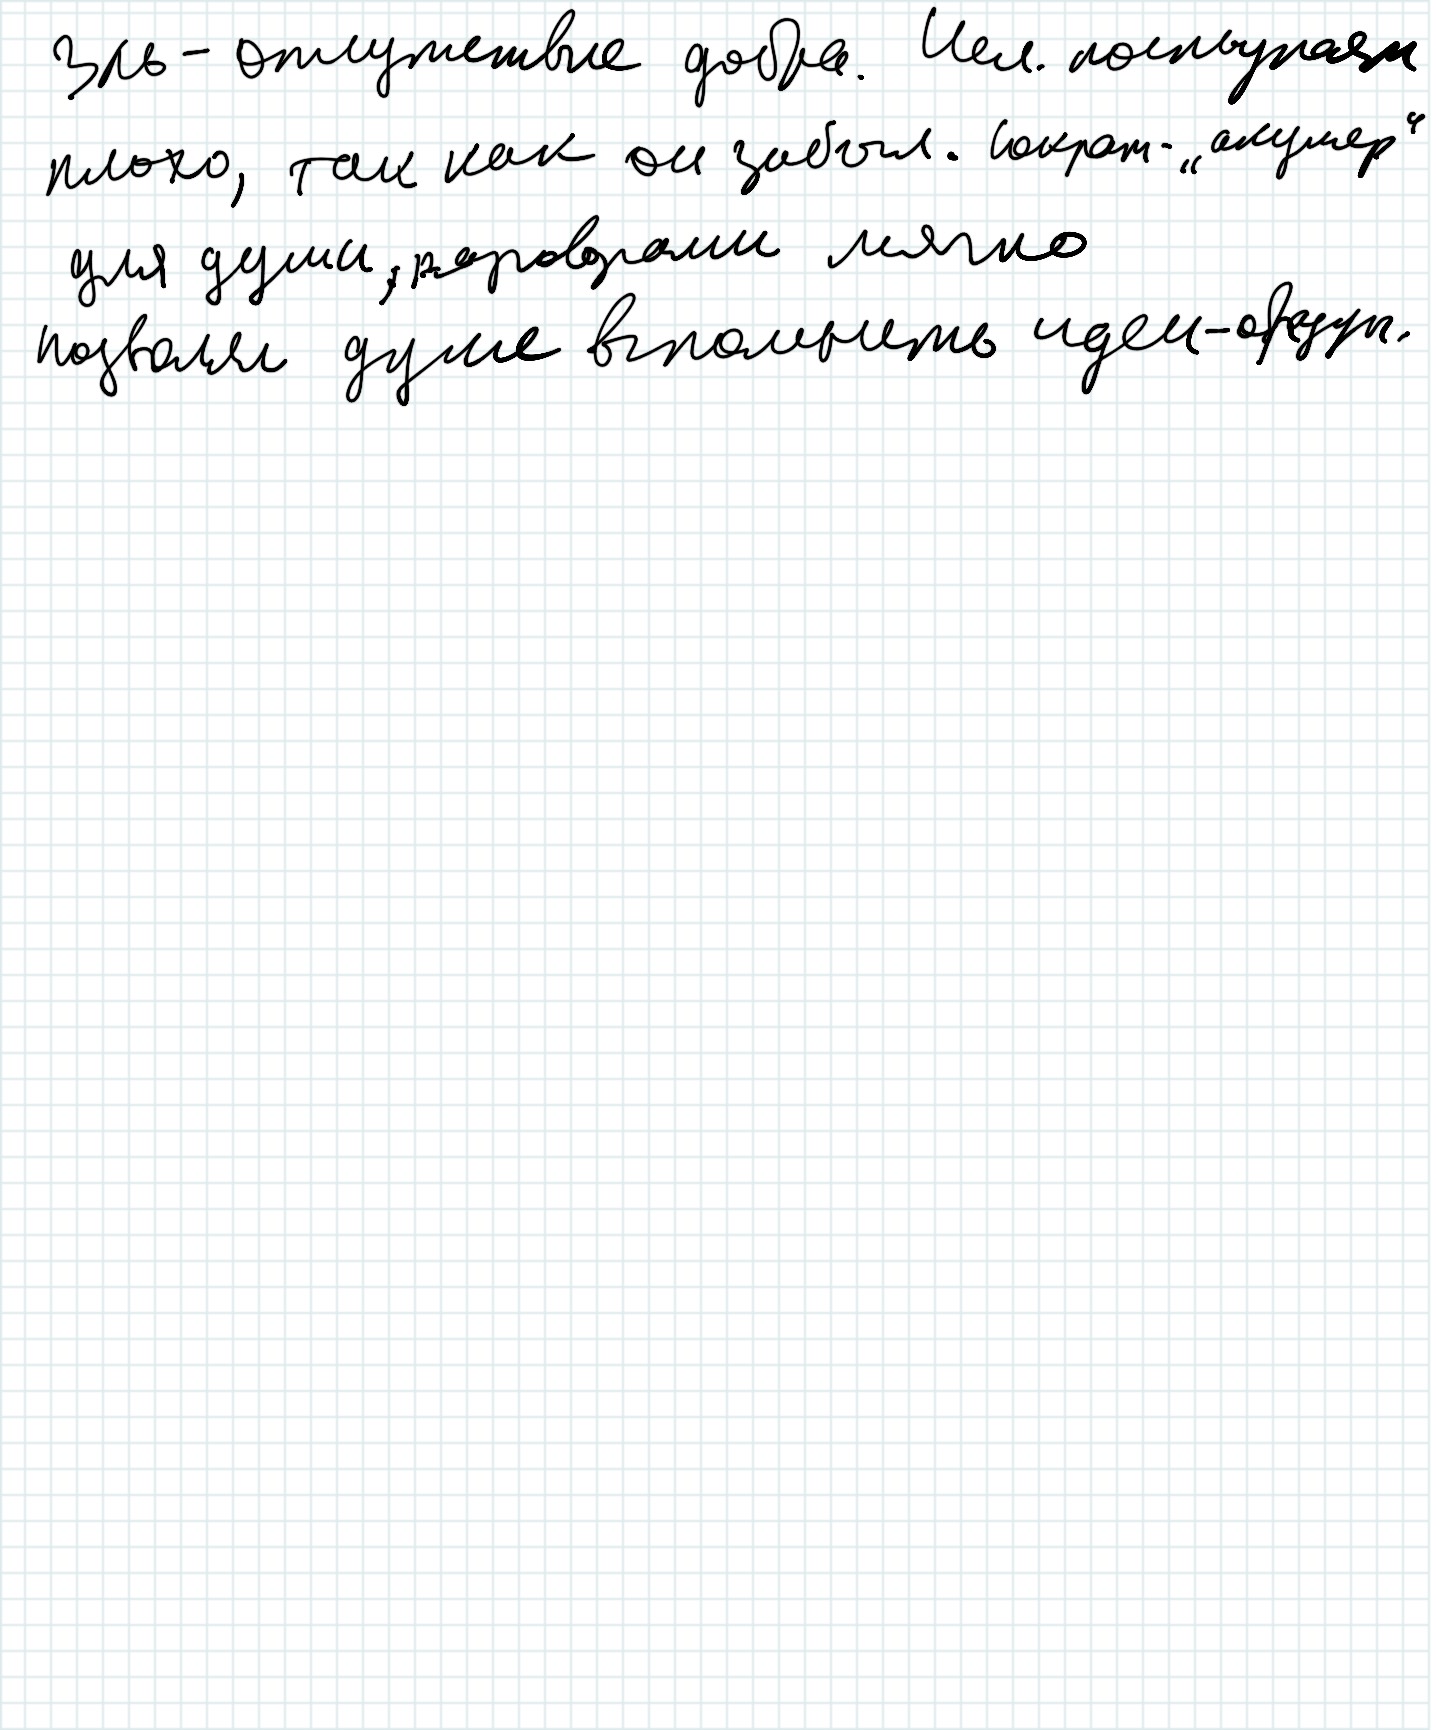 Зль - отсутствие добра. Чел. поступает
плохо, так как он забыл. Сократ - „акушер“
для души, разговорами мягко
позволял душе вспомнить идеи-